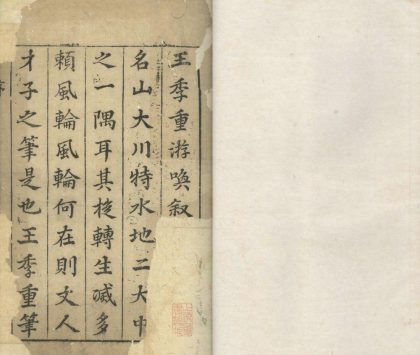 王季重游喚叙
名山大川特水地二大中
之一隅耳其旋轉生滅多
頼風輪風輪何在則文人
才子之筆是也王季重筆
序